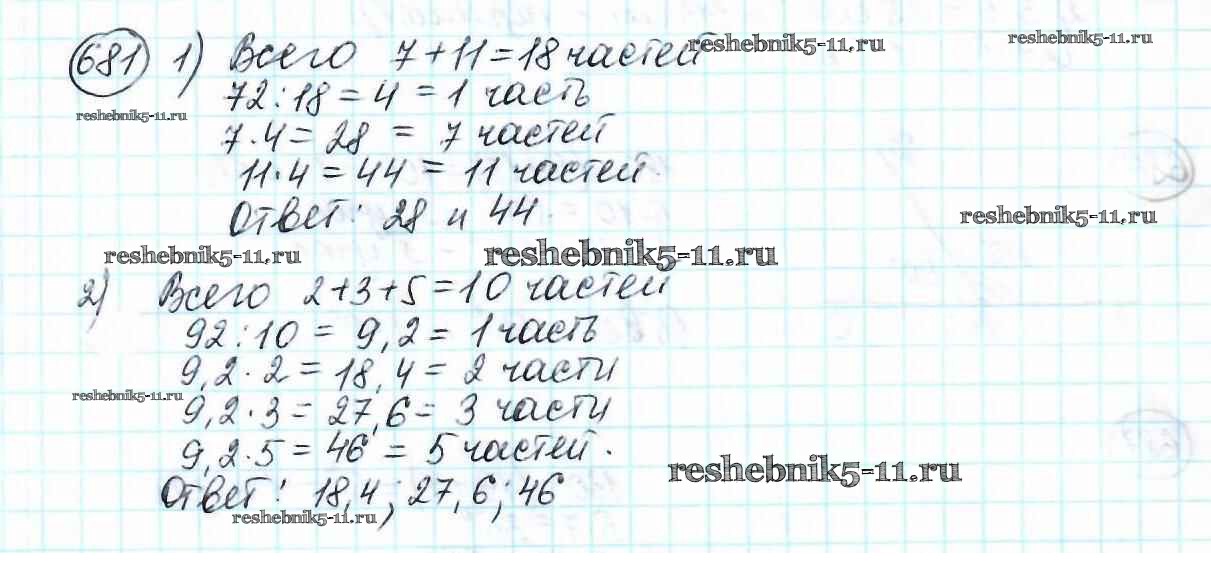 681 1) Всего 7+11=18 частей reshebnik5-11.ru reshebnik5-11.ru
72:18=4=1 часть
reshebnik5-11.ru
7·4=28=7 частей
11·4=44=11 частей
Ответ: 28 и 44. reshebnik5-11.ru
reshebnik5-11.ru reshebnik5-11.ru
2) Всего 2+3+5=10 частей
92:10=9,2=1 часть
9,2·2=18,4=2 части
reshebnik5-11.ru
9,2·3=27,6=3 части
9,2·5=46=5 частей.
reshebnik5-11.ru
Ответ: 18,4; 27,6; 46
reshebnik5-11.ru